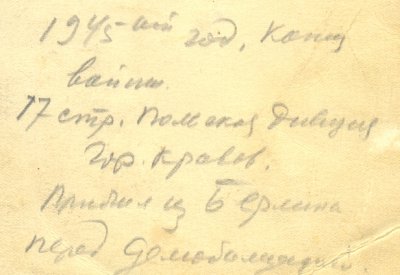 1945-ый год. Конец
войны.
17 стр. Польская Дивизия
Гор. Краков.
Прибыл из Берлина
перед демобилизацией.